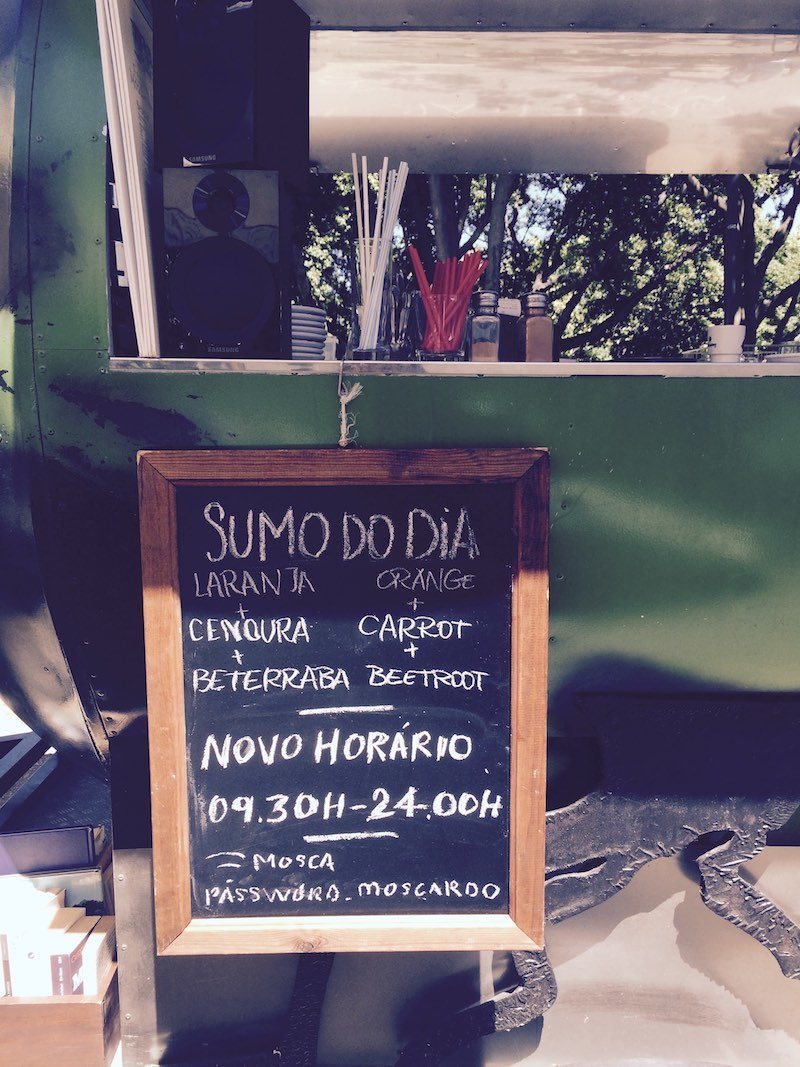 SAMSUNG
SAMSUNG
SUMO DO DIA
LARANJA ORANGE
+ +
CENOURA CARROT
+ +
BETERRABA BEETROOT
NOVO HORÁRIO
09.30H-24.00H
MOSCA
PASSWORD. MOSCARDO